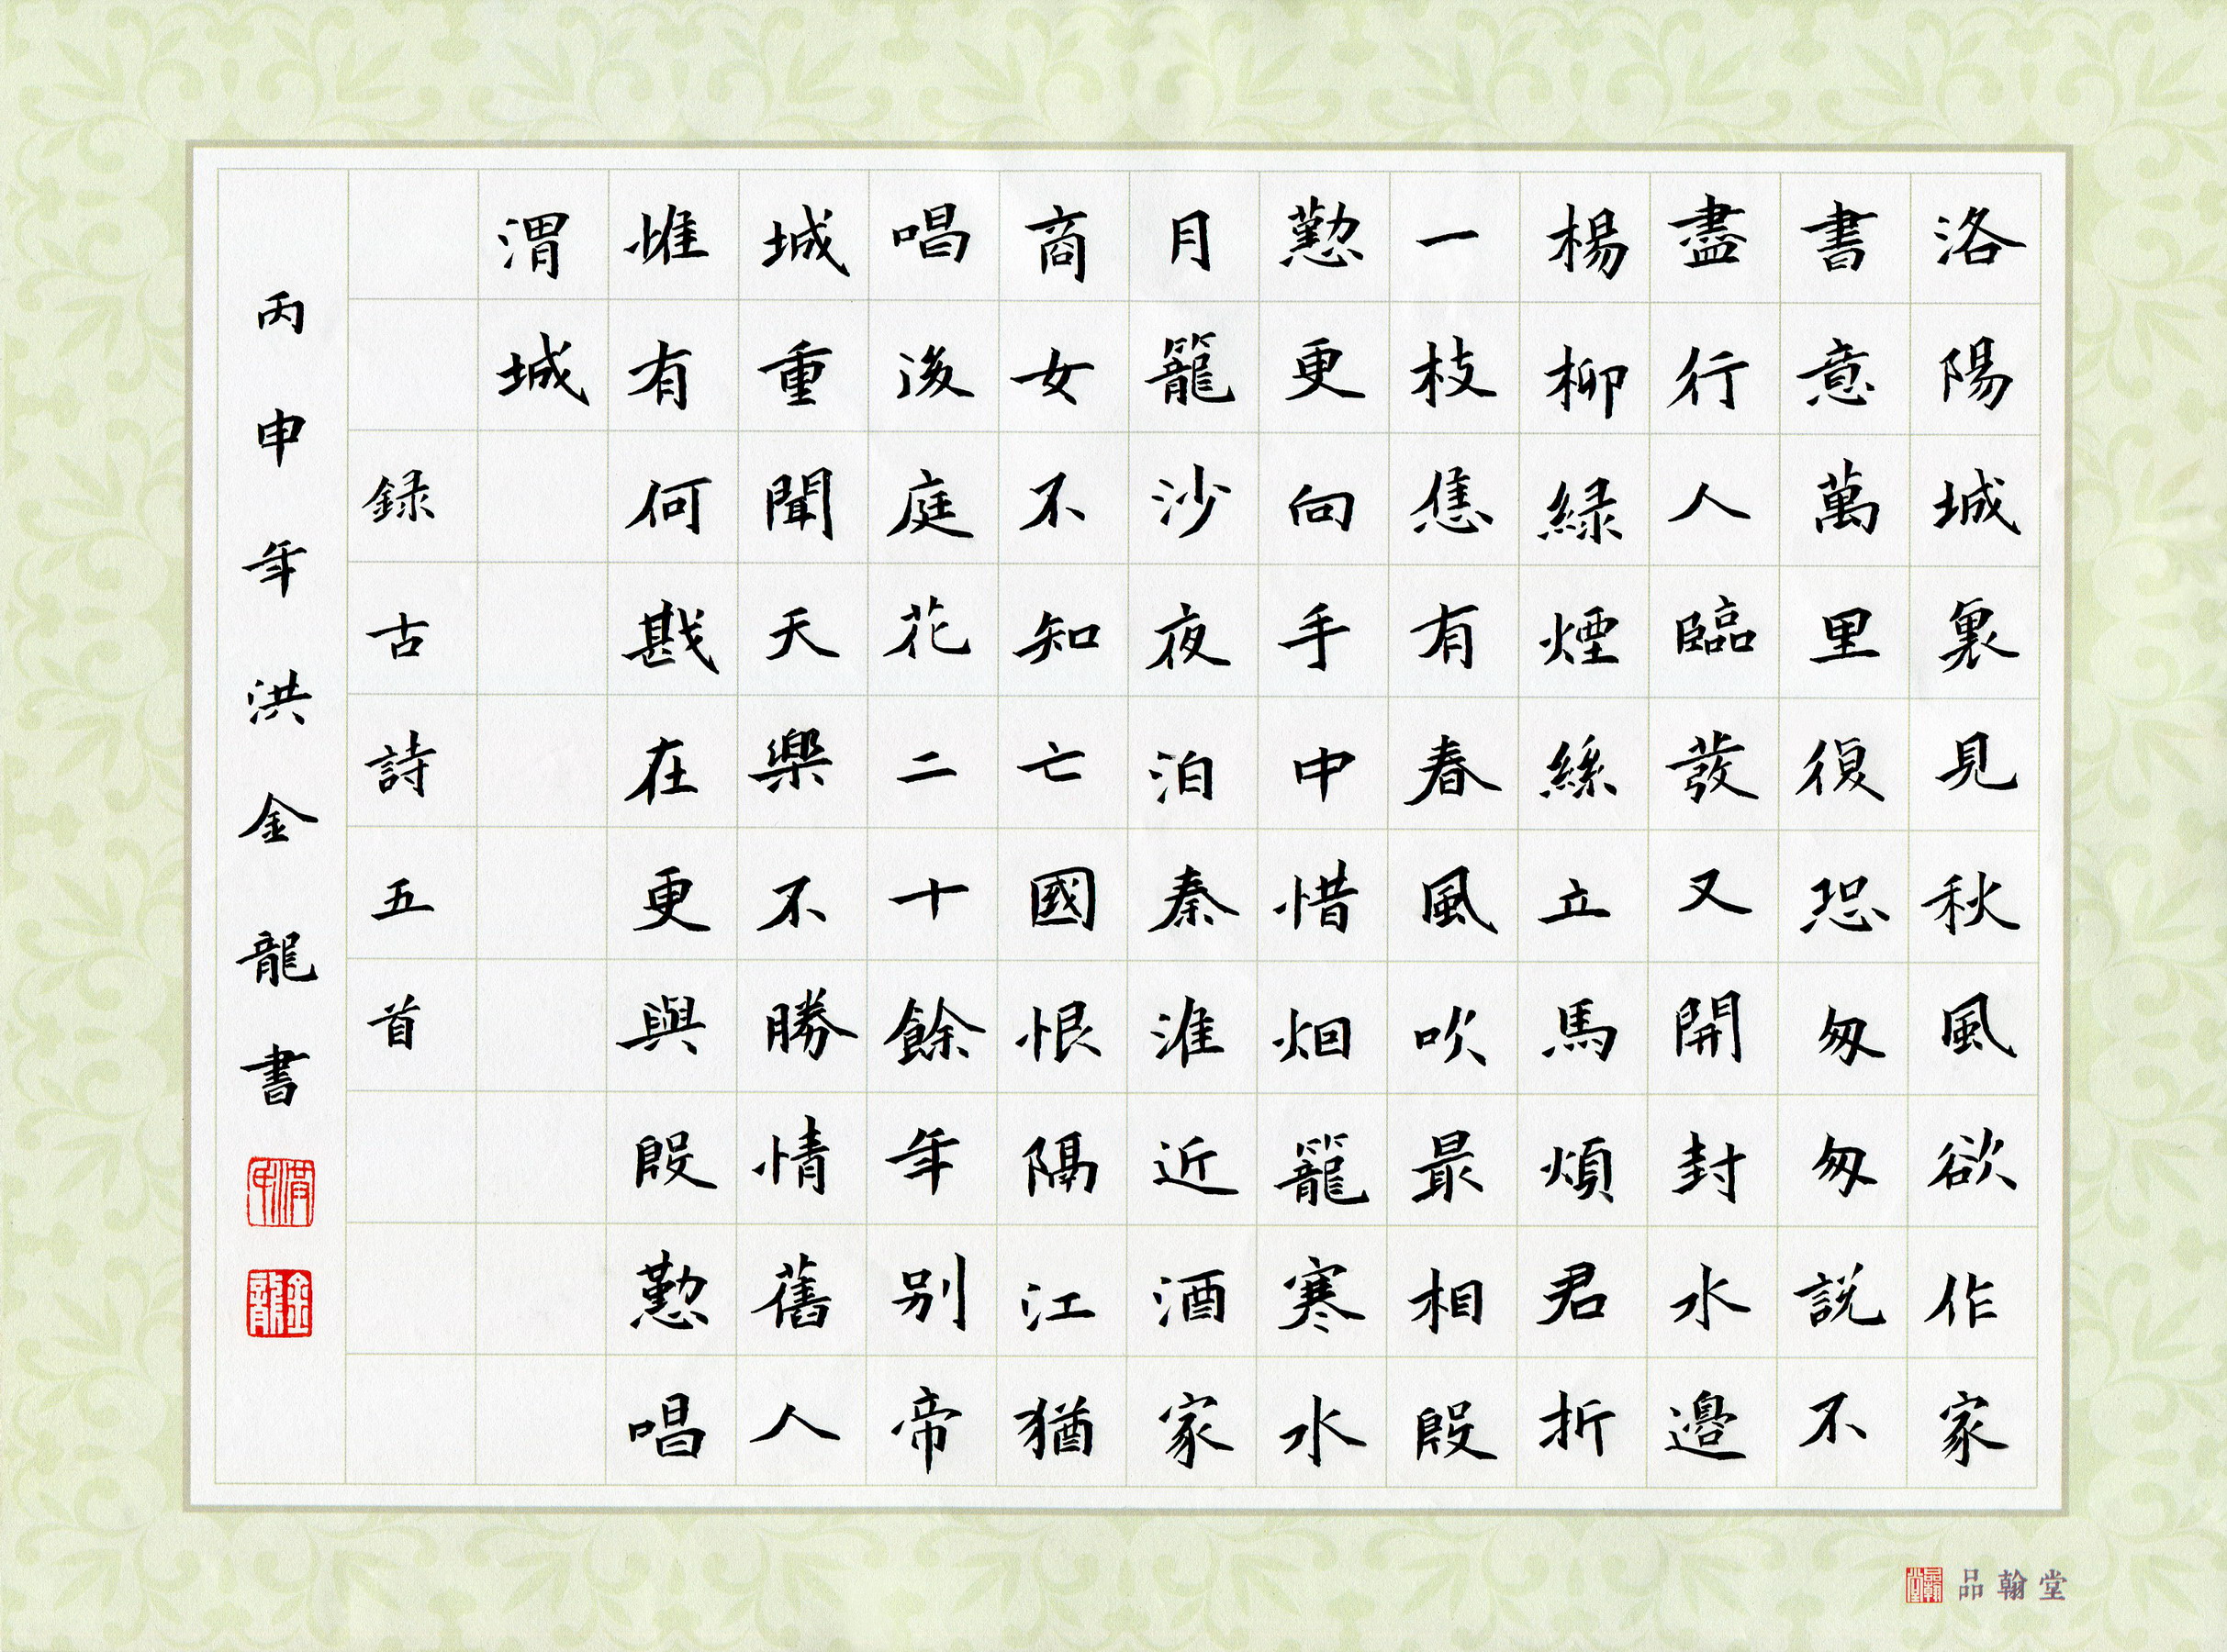 洛陽城裏見秋風欲作家
書意萬里復恐匆匆說不
盡行人臨發又開封水邊
楊柳綠煙絲立馬煩君折
一枝惟有春風吹最相殷
懃更向手中惜烟籠寒水
月籠沙夜泊秦淮近酒家
商女不知亡國恨隔江猶
唱後庭花二十餘年別帝
城重聞天樂不勝情舊人
惟有何戡在更與殷懃唱
渭城
録古詩五首
丙申年洪金龍書
金龍
品翰堂
品翰堂